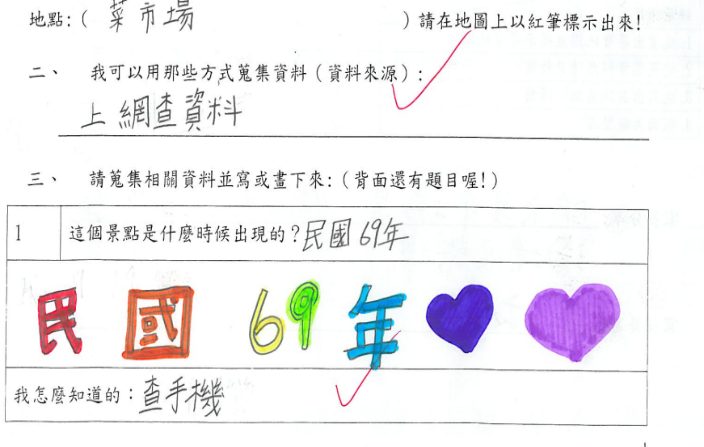 地點:( 菜市場 )請在地圖上以紅筆標示出來!
二、 我可以用那些方式蒐集資料(資料來源):
上網查資料
三、 請蒐集相關資料並寫或畫下來:(背面還有題目喔!)
1 這個景點是什麼時候出現的?民國69年
民國69年
我怎麼知道的:查手機